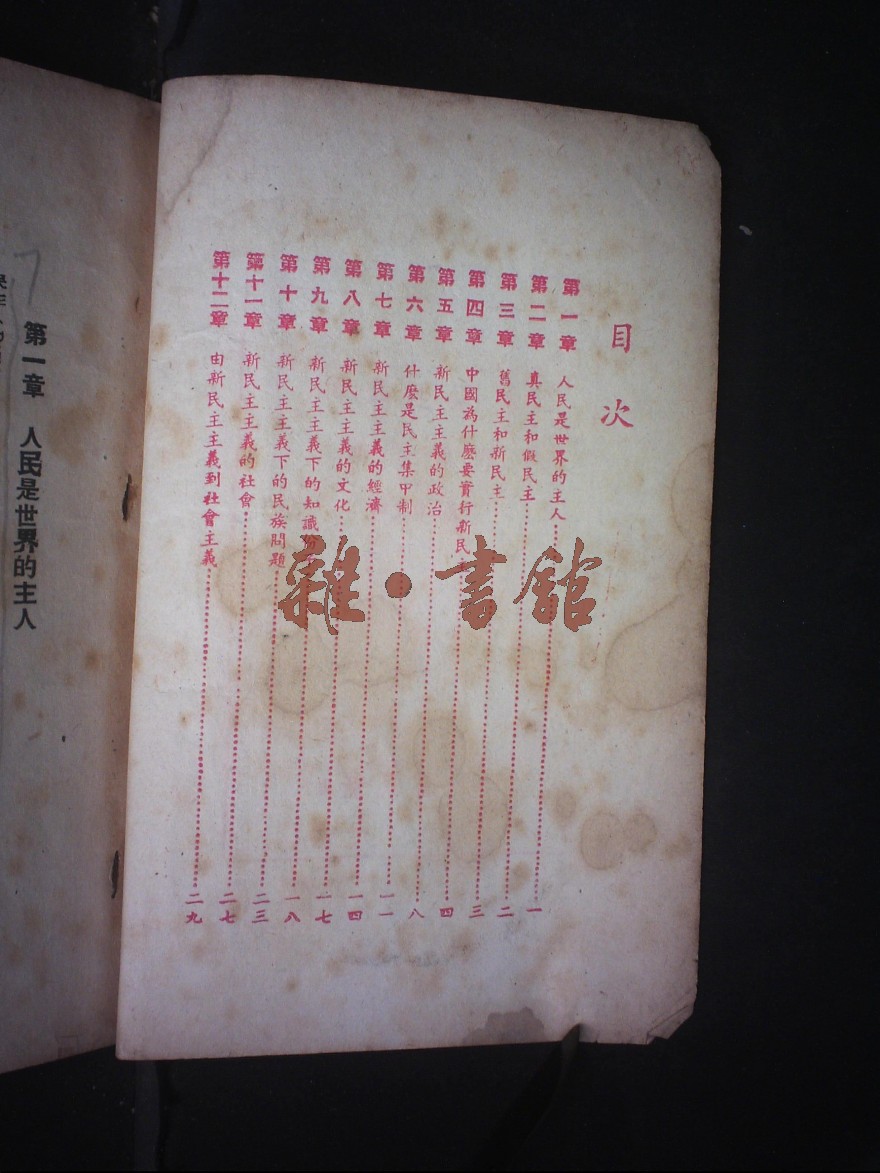 目次
第一章 人民是世界的主人 一
第二章 真民主和假民主 二
第三章 舊民主和新民主 三
第四章 中國為什麽要實行新民 四
第五章 新民主主義的政治 八
第六章 什麽是民主集中制 一一
第七章 新民主主義的經濟 一四
第八章 新民主主義的文化 一七
第九章 新民主主義下的知識 一八
第十章 新民主主義下的民族問題 二三
第十一章 新民主主義的社會 二七
第十二章 由新民主主義到社會主義 二九
雜·書館
第一章 人民是世界的主人